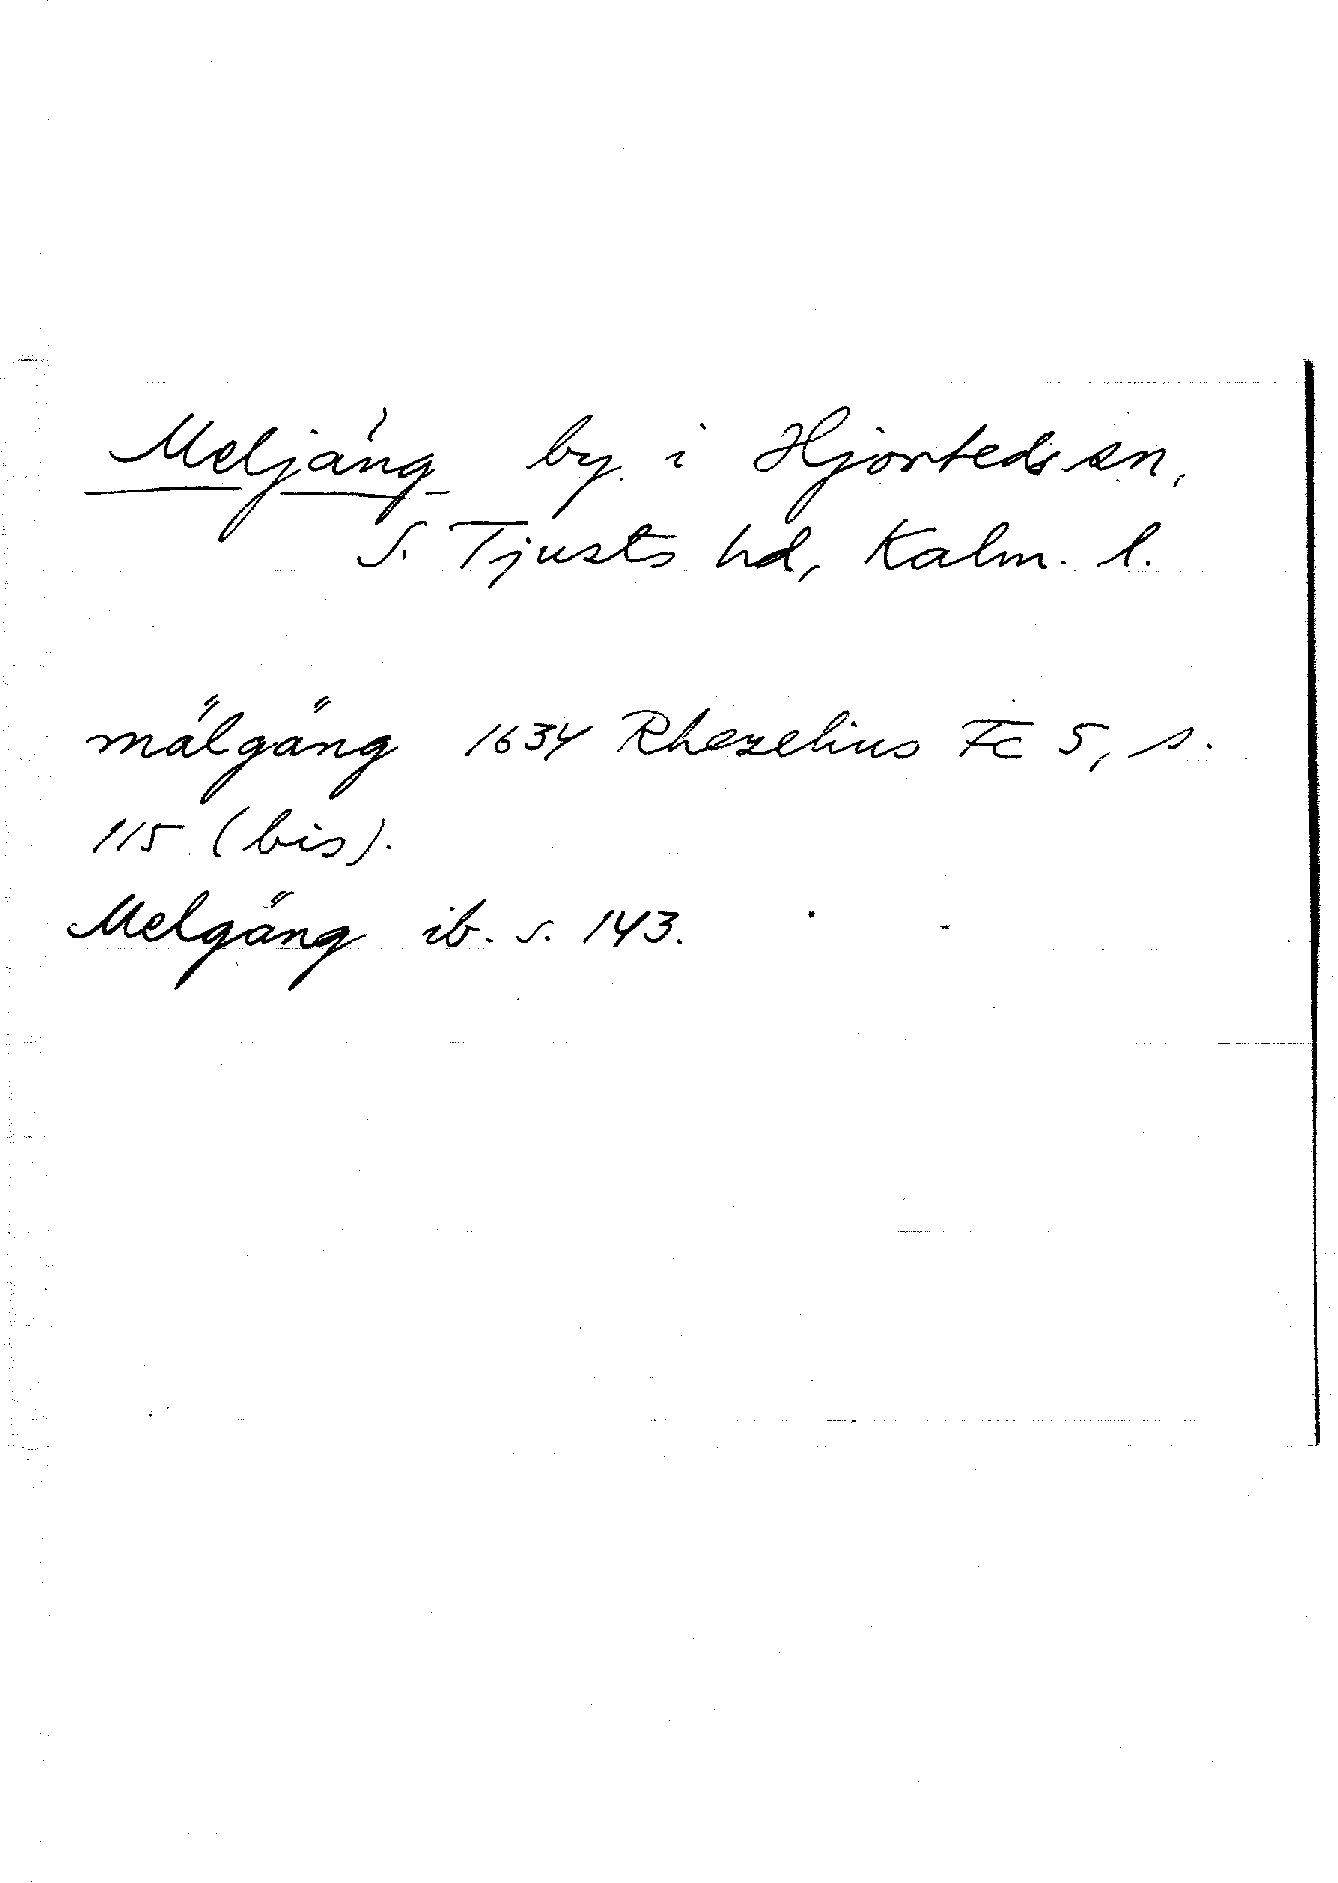 Meljäng by i Hjorteds sn,
S. Tjusts hd, Kalm. l.
mälgäng 1634 Rhezelius Fc 5, s.
115 (bis).
Melgäng ib. s. 143.